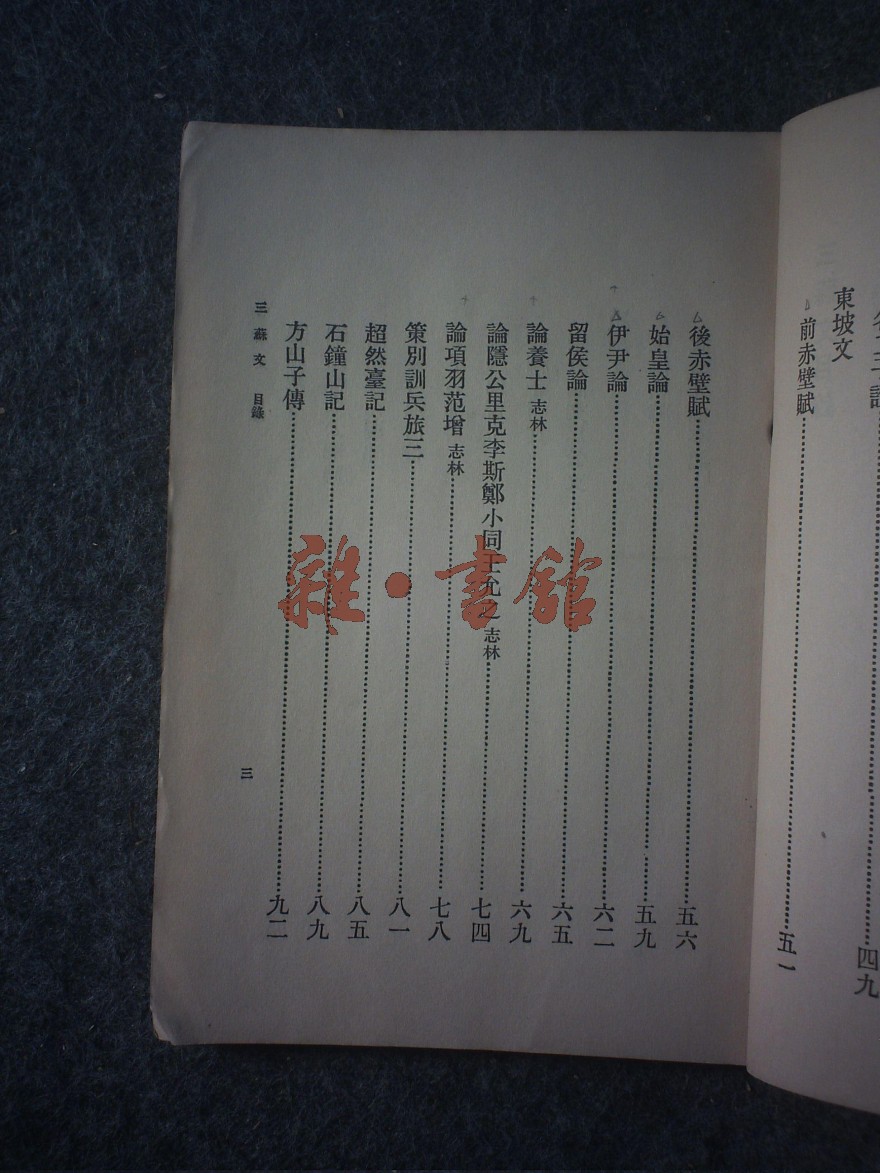 四九
東坡文
前赤壁賦 五一
後赤壁賦 五六
始皇論 五九
伊尹論 六二
留侯論 六五
論養士 志林 六九
論隱公里克李斯鄭小同王允之 志林 七四
論項羽范增 志林 七八
策別訓兵旅三 八一
超然臺記 八五
石鐘山記 八九
方山子傳 九二
三蘇文 目錄
三
雜·書館